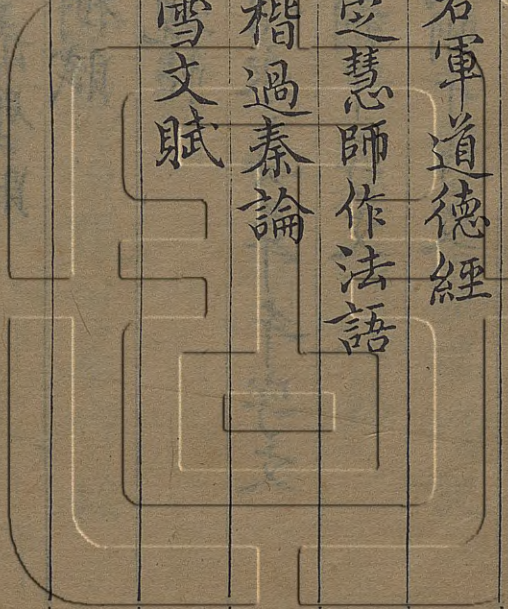 右軍道德經
定慧師作法語
楷過秦論
雪文賦